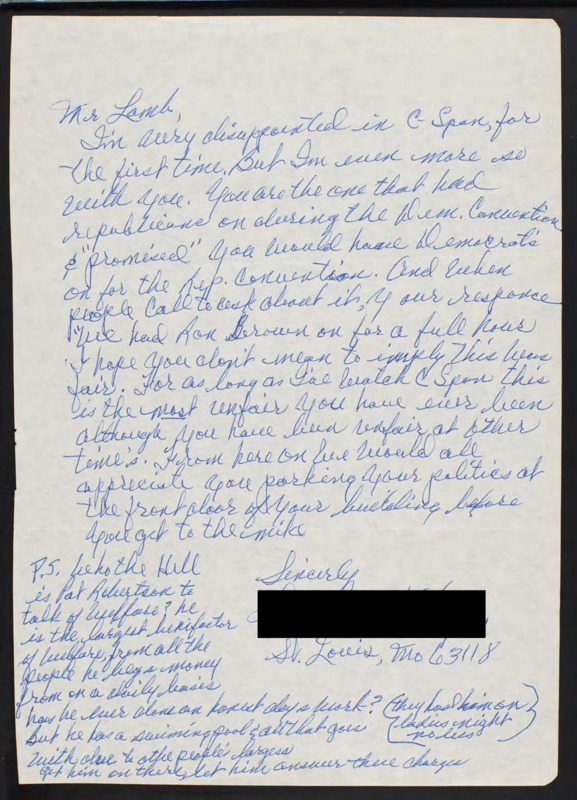 Mr Lamb,
I'm very disappointed in C-Span, for
the first time, But I'm even more so
with you. You are the one that had
republicans on during the Dem. Convention
& "promised" you would have Democrats
on for the Rep. Convention. And when
people call to ask about it, your responce
"we had Ron Brown on for a full hour
I hope you don't mean to imply this was
fair. For as long as I've watch C Span this
is the most unfair you have ever been
although you have been unfair at other
time's. From here on we would all
appreciate you parking your politics at
the front door of your building before
you get to the mike
Sincerly
St. Louis, Mo 63118
P.S. who the Hell
is Pat Robertson to
talk of welfare? he
is the largest benifactor
of welfare, from all the
people he begs money
from on a daily basis
has he ever done an honest days work? (they had him on
ladies night
no less)
but he has a swiming pool & all that goes
with
people's
get him on there, let him answer these charges